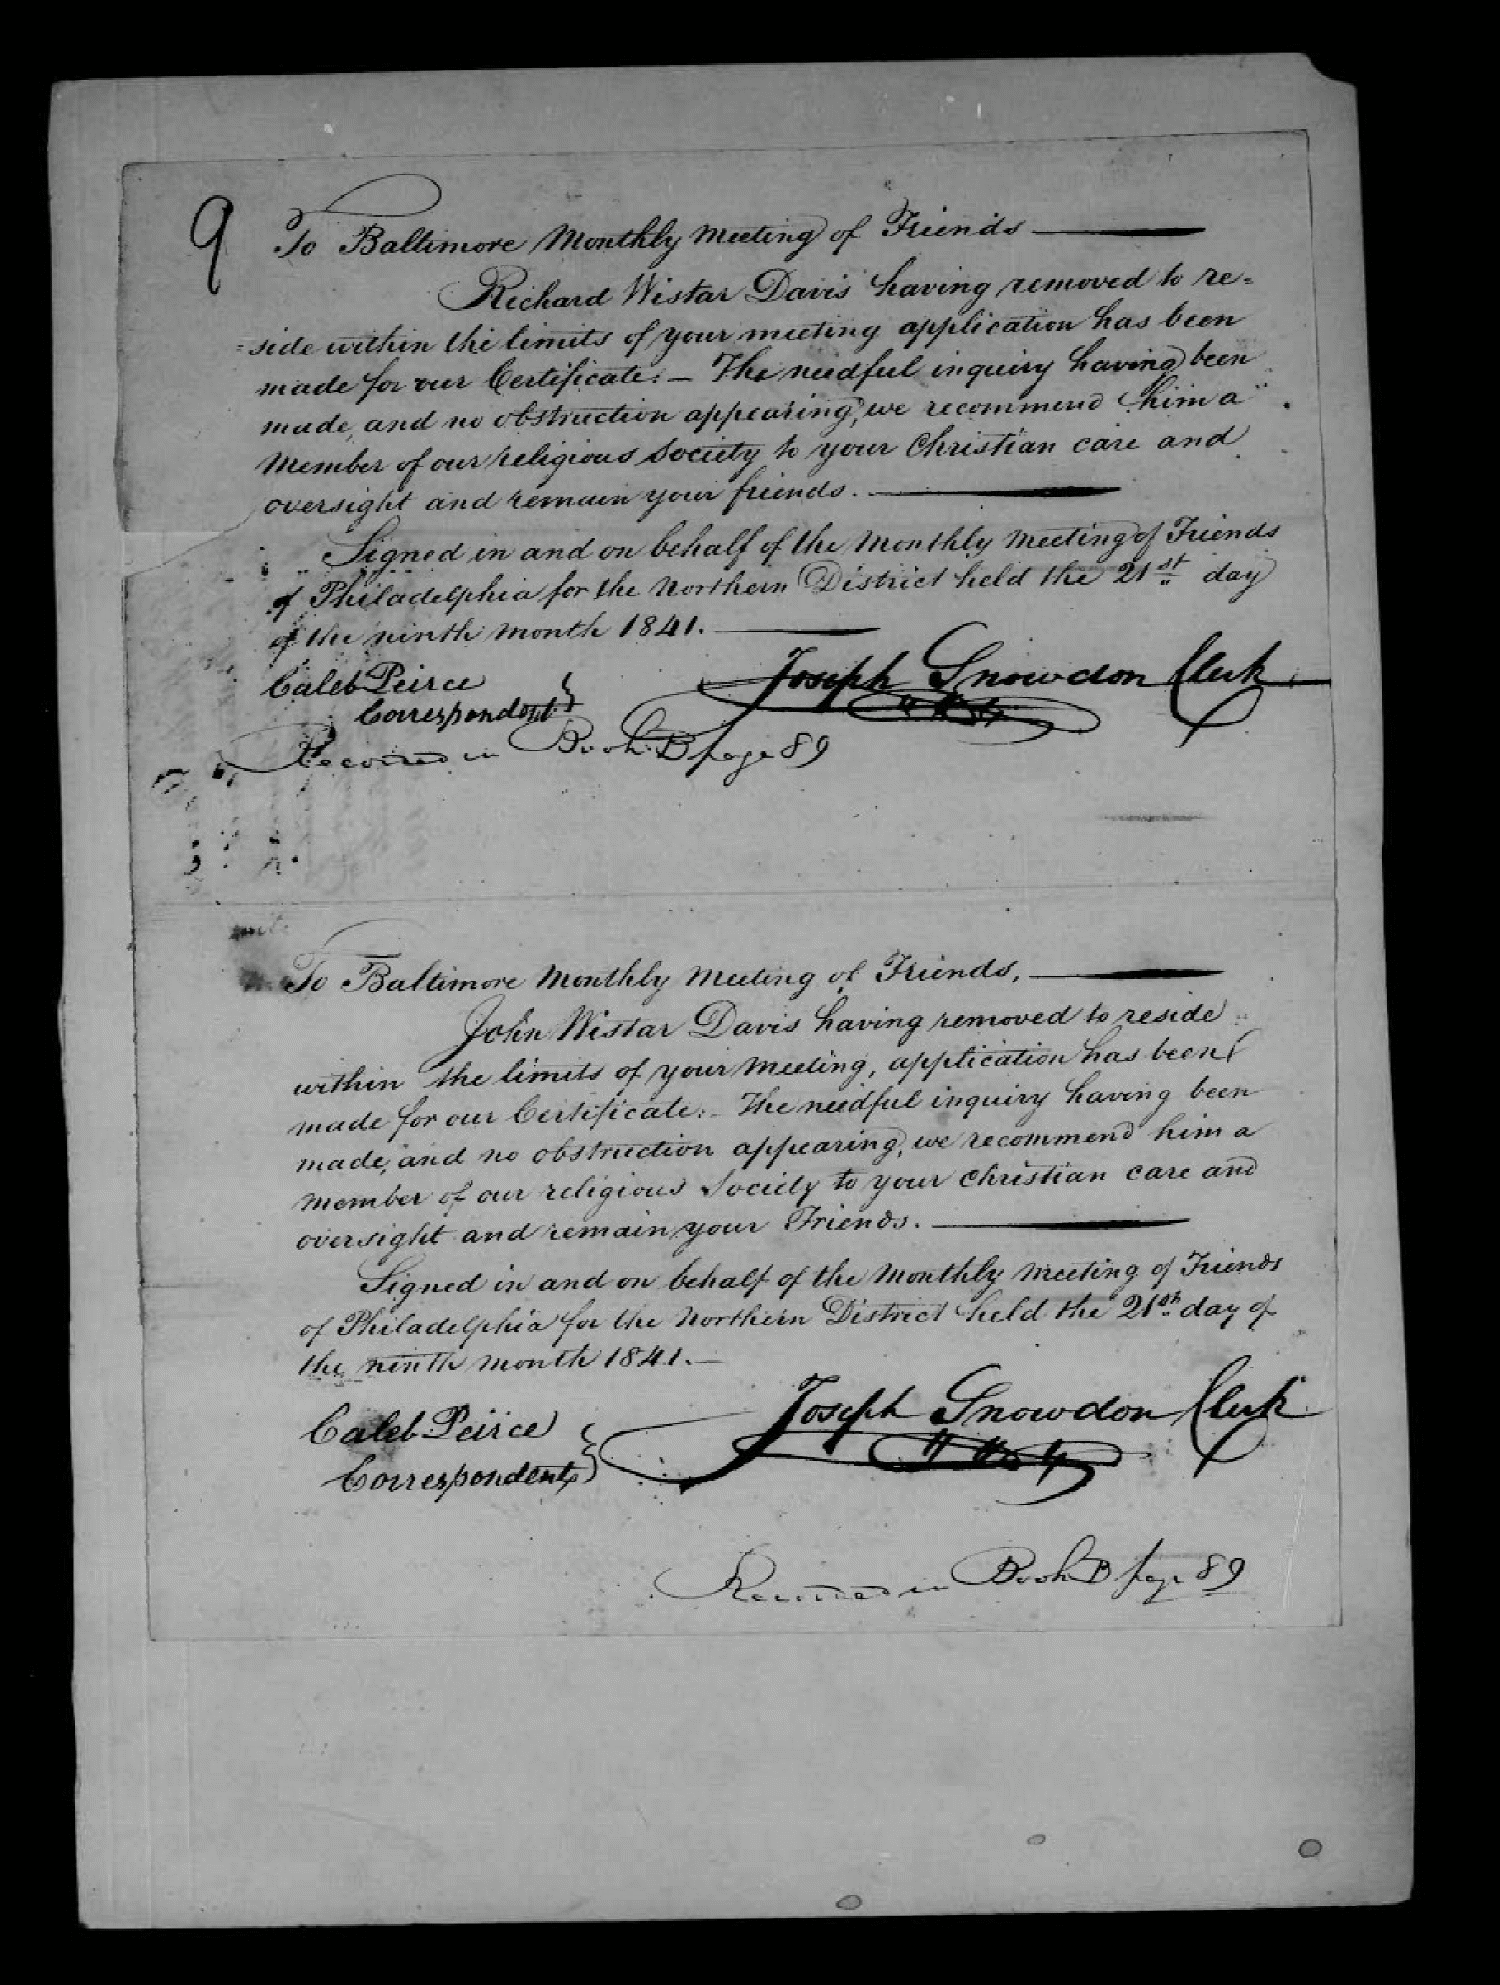 9
To Baltimore Monthly Meeting of Friends
Richard Wistar Davis having removed to re=
=side within the limits of your meeting application has been
made for our Certificate:— The needful inquiry having been
made, and no obstruction appearing, we recommend him a
Member of our religious Society to your Christian care and
oversight and remain your friends.
Signed in and on behalf of the Monthly Meeting of Friends
of Philadelphia for the Northern District held the 21st day
of the ninth month 1841.
Caleb Peirce
Joseph Snowdon Clerk
Correspondent
Recorded in Book B page 89
To Baltimore Monthly Meeting of Friends,
John Wistar Davis having removed to reside
within the limits of your Meeting, application has been
made for our Certificate:— The needful inquiry having been
made, and no obstruction appearing, we recommend him a
member of our religious Society to your Christian care and
oversight and remain your Friends.
Signed in and on behalf of the Monthly Meeting of Friends
of Philadelphia for the Northern District held the 21st day of
the ninth month 1841.—
Joseph Snowdon Clerk
Caleb Peirce
Correspondent
Recorded in Book B page 89